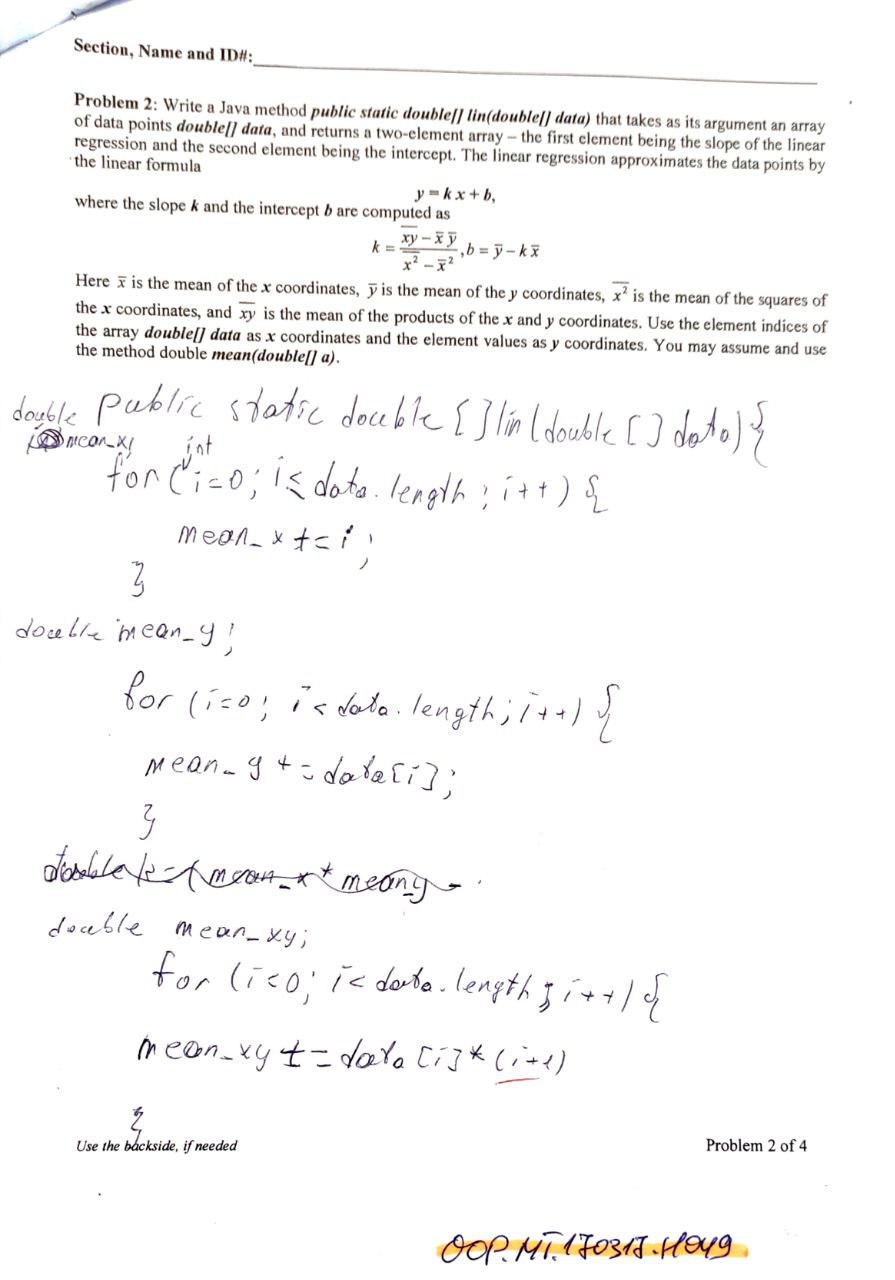 Section, Name and ID#:
Problem 2: Write a Java method public static double[] lin(double[] data) that takes as its argument an array
of data points double[] data, and returns a two-element array – the first element being the slope of the linear
regression and the second element being the intercept. The linear regression approximates the data points by
the linear formula
y = k x + b,
where the slope k and the intercept b are computed as
k = (x̅y̅ – x̄ ȳ) / (x̅²̅ – x̄²) , b = ȳ – k x̄
Here x̄ is the mean of the x coordinates, ȳ is the mean of the y coordinates, x̅²̅ is the mean of the squares of
the x coordinates, and x̅y̅ is the mean of the products of the x and y coordinates. Use the element indices of
the array double[] data as x coordinates and the element values as y coordinates. You may assume and use
the method double mean(double[] a).
public static double [] lin(double [] data){
double mean_x;
for (int i=0; i< data.length; i++) {
mean_x += i;
}
double mean_y;
for (i=0; i< data.length; i++) {
mean_y += data[i];
}
double k = (mean_x * mean_y -
double mean_xy;
for (i=0; i< data.length; i++) {
mean_xy += data [i] * (i+1)
}
Use the backside, if needed
Problem 2 of 4
OOP.MT.170317.H049